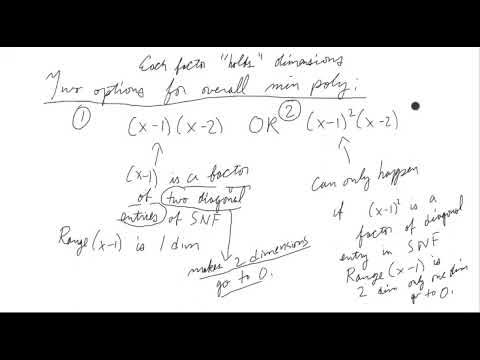 Each factor "holds" dimensions
Two options for overall min poly:
① (x-1)(x-2) OR ② (x-1)²(x-2)
(x-1) is a factor
of two diagonal
entries of SNF
Range (x-1) is 1 dim
makes 2 dimensions
go to 0.
Can only happen
if (x-1)² is a
factor of diagonal
entry in SNF
Range (x-1) is
2 dim only one dim
go to 0.